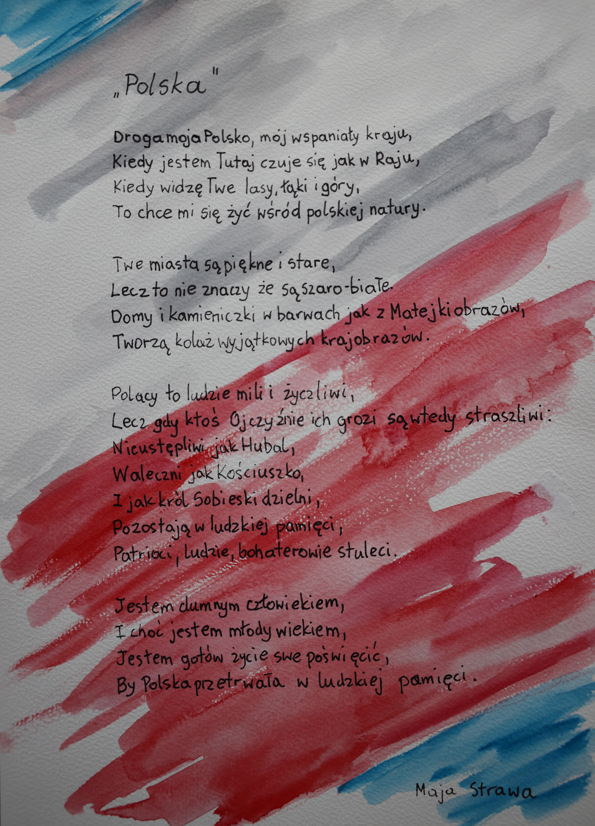 „Polska"
Droga moja Polsko, mój wspaniały kraju,
Kiedy jestem Tutaj czuje się jak w Raju,
Kiedy widzę Twe lasy, łąki i góry,
To chce mi się żyć wśród polskiej natury.
Twe miasta są piękne i stare,
Lecz to nie znaczy że są szaro-białe.
Domy i kamieniczki w barwach jak z Matejki obrazów,
Tworzą kolaż wyjątkowych krajobrazów.
Polacy to ludzie mili i życzliwi,
Lecz gdy ktoś Ojczyźnie ich grozi są wtedy straszliwi:
Nieustępliwi jak Hubal,
Waleczni jak Kościuszko,
I jak król Sobieski dzielni,
Pozostają w ludzkiej pamięci,
Patrioci, ludzie, bohaterowie stuleci.
Jestem dumnym człowiekiem,
I choć jestem młody wiekiem,
Jestem gotów życie swe poświęcić,
By Polska przetrwała w ludzkiej pamięci.
Maja Strawa